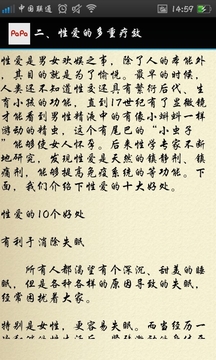 中国联通 14:59
PaPa 二、性爱的多重疗效
性爱是男女欢娱之事，除了人的本能外
，其目的就是为了愉悦。最早的时候，
人类还不知道性交还具有繁衍后代、生
育小孩的功能，直到17世纪有了显微镜
才能看到男性精液中的有像小蝌蚪一样
游动的精虫，这个有尾巴的“小虫子
”能够使女人怀孕。后来性学专家不断
地研究，发现性爱是天然的镇静剂、镇
痛剂，能够提高免疫系统的等功能。下
面，我们介绍下性爱的十大好处。
性爱的10个好处
有利于消除失眠
所有人都渴望有个深沉、甜美的睡
眠，但是各种各样的原因导致的失眠，
经常困扰着大家。
特别是女性，更容易失眠。而当经历一